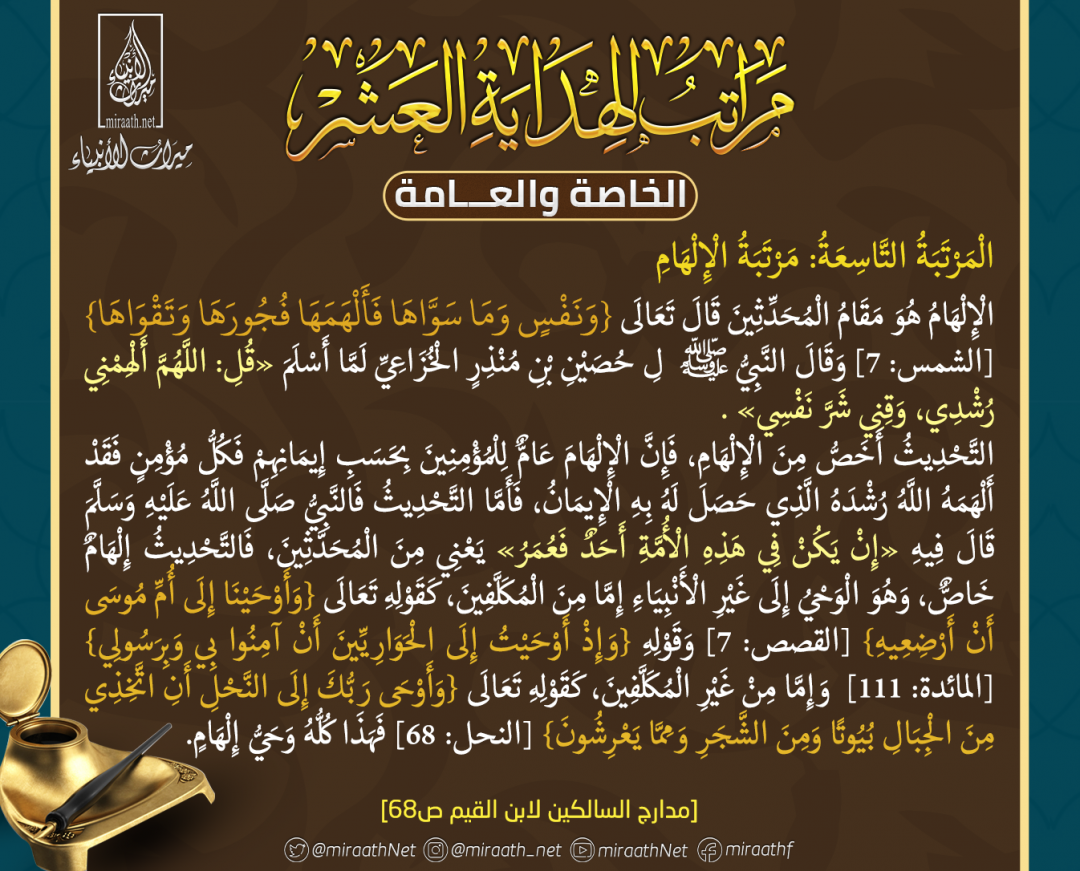 ميراث الأنبياء
miraath.net
ميراث الأنبياء
مَرَاتِبُ الهِدَايَةِ العَشْر
الخاصة والعـــامة
الْمَرْتَبَةُ التَّاسِعَةُ: مَرْتَبَةُ الْإِلْهَامِ
الْإِلْهَامُ هُوَ مَقَامُ الْمُحَدِّثِينَ قَالَ تَعَالَى {وَنَفْسٍ وَمَا سَوَّاهَا فَأَلْهَمَهَا فُجُورَهَا وَتَقْوَاهَا}
[الشمس: 7] وَقَالَ النَّبِيُّ ﷺ لِ حُصَيْنِ بْنِ مُنْذِرٍ الْخُزَاعِيِّ لَمَّا أَسْلَمَ «قُلِ: اللَّهُمَّ أَلْهِمْنِي
رُشْدِي، وَقِنِي شَرَّ نَفْسِي» .
التَّحْدِيثُ أَخَصُّ مِنَ الْإِلْهَامِ، فَإِنَّ الْإِلْهَامَ عَامٌّ لِلْمُؤْمِنِينَ بِحَسَبِ إِيمَانِهِمْ فَكُلُّ مُؤْمِنٍ فَقَدْ
أَلْهَمَهُ اللَّهُ رُشْدَهُ الَّذِي حَصَلَ لَهُ بِهِ الْإِيمَانُ، فَأَمَّا التَّحْدِيثُ فَالنَّبِيُّ صَلَّى اللَّهُ عَلَيْهِ وَسَلَّمَ
قَالَ فِيهِ «إِنْ يَكُنْ فِي هَذِهِ الْأُمَّةِ أَحَدٌ فَعُمَرُ» يَعْنِي مِنَ الْمُحَدَّثِينَ، فَالتَّحْدِيثُ إِلْهَامٌ
خَاصٌّ، وَهُوَ الْوَحْيُ إِلَى غَيْرِ الْأَنْبِيَاءِ إِمَّا مِنَ الْمُكَلَّفِينَ، كَقَوْلِهِ تَعَالَى {وَأَوْحَيْنَا إِلَى أُمِّ مُوسَى
أَنْ أَرْضِعِيهِ} [القصص: 7] وَقَوْلِهِ {وَإِذْ أَوْحَيْتُ إِلَى الْحَوَارِيِّينَ أَنْ آمِنُوا بِي وَبِرَسُولِي}
[المائدة: 111] وَإِمَّا مِنْ غَيْرِ الْمُكَلَّفِينَ، كَقَوْلِهِ تَعَالَى {وَأَوْحَى رَبُّكَ إِلَى النَّحْلِ أَنِ اتَّخِذِي
مِنَ الْجِبَالِ بُيُوتًا وَمِنَ الشَّجَرِ وَمِمَّا يَعْرِشُونَ} [النحل: 68] فَهَذَا كُلُّهُ وَحَيُّ إِلْهَامٍ.
[مدارج السالكين لابن القيم ص68]
@miraathNet @miraath_net miraathNet miraathf